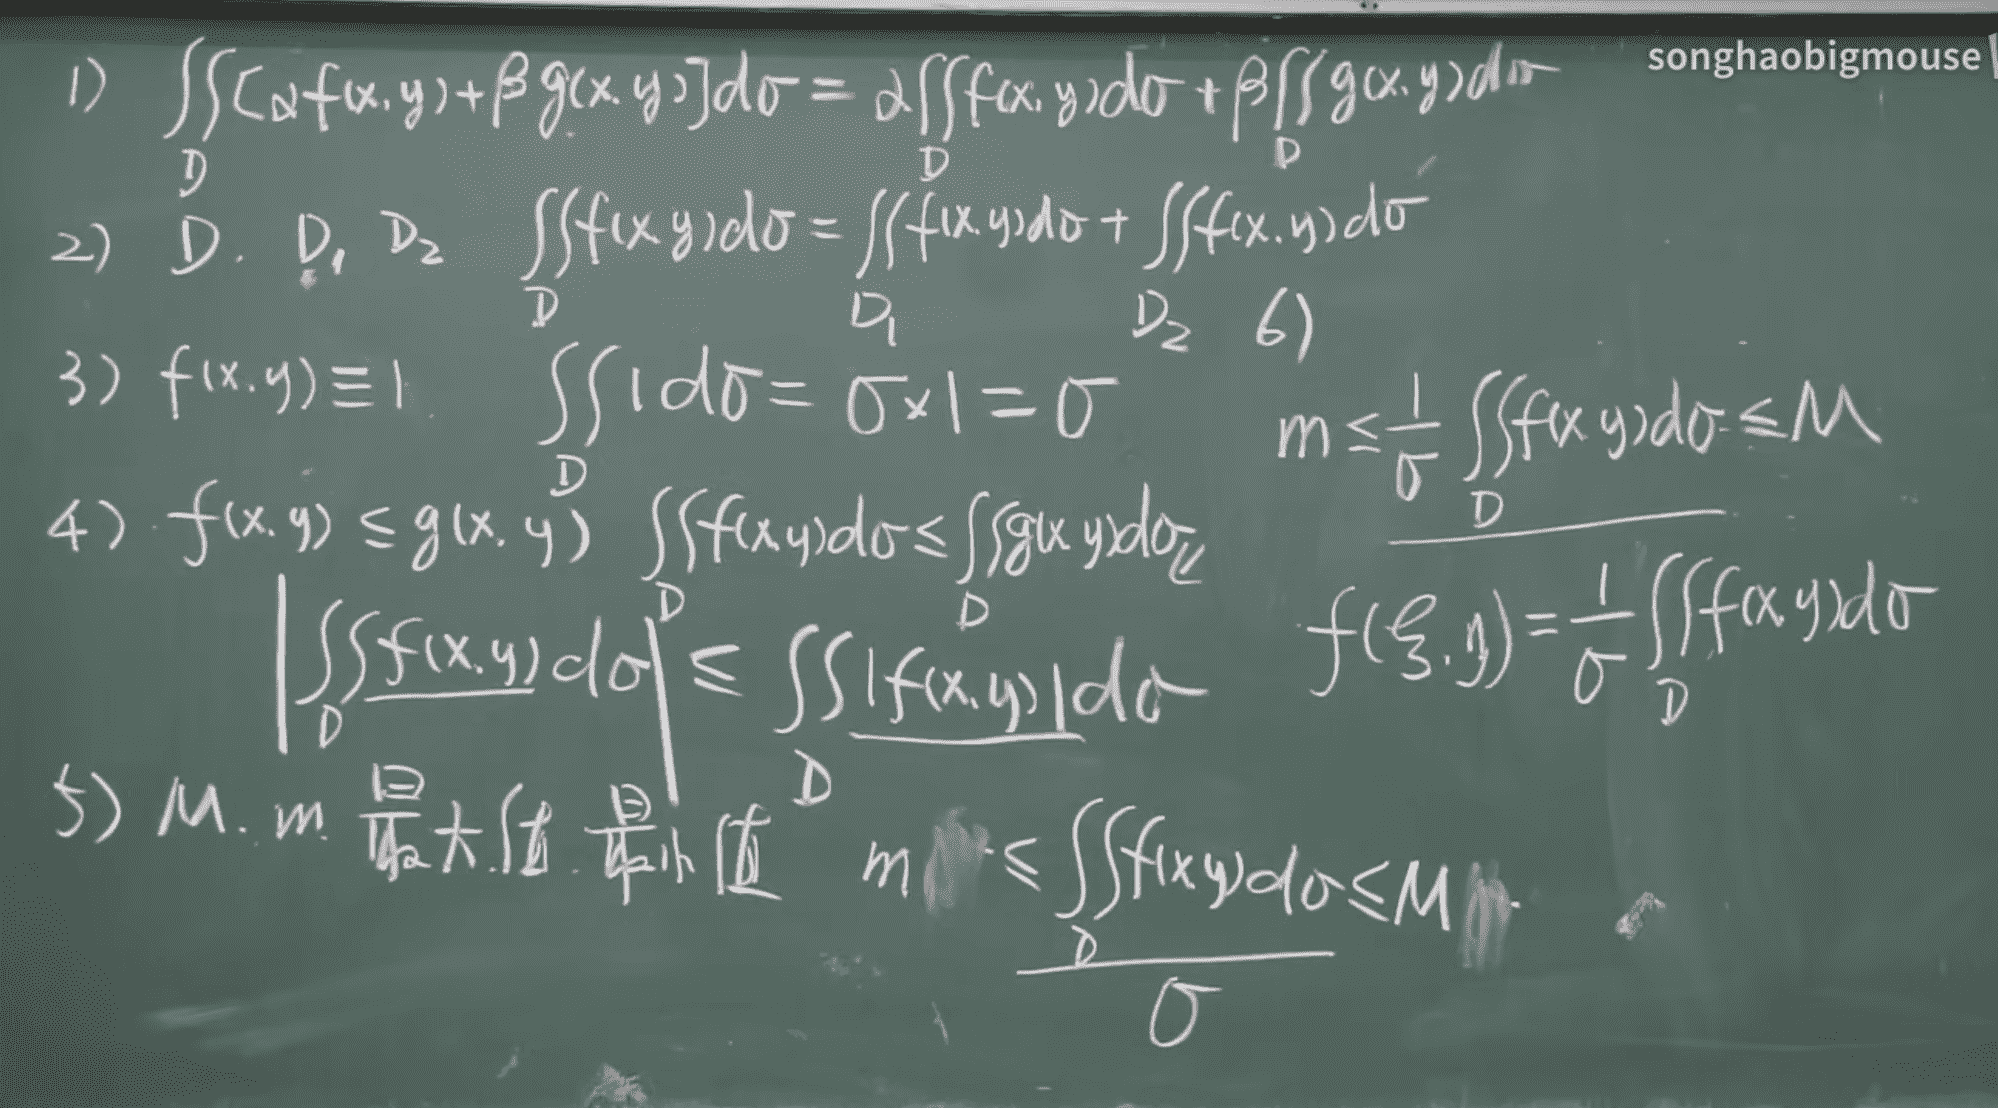 songhaobigmouse
1) ∬_D [αf(x,y)+βg(x,y)]dσ = α∬_D f(x,y)dσ + β∬_D g(x,y)dσ
2) D. D₁ D₂ ∬_D f(x,y)dσ = ∬_D₁ f(x,y)dσ + ∬_D₂ f(x,y)dσ
3) f(x,y)≡1. ∬_D 1dσ = σ×1 = σ
4) f(x,y) ≤ g(x,y) ∬_D f(x,y)dσ ≤ ∬_D g(x,y)dσ
|∬_D f(x,y)dσ| ≤ ∬_D |f(x,y)|dσ
5) M. m. 最大值. 最小值 m ≤ ∬_D f(x,y)dσ / σ ≤ M
6)
m ≤ 1/σ ∬_D f(x,y)dσ ≤ M
f(ξ,η) = 1/σ ∬_D f(x,y)dσ